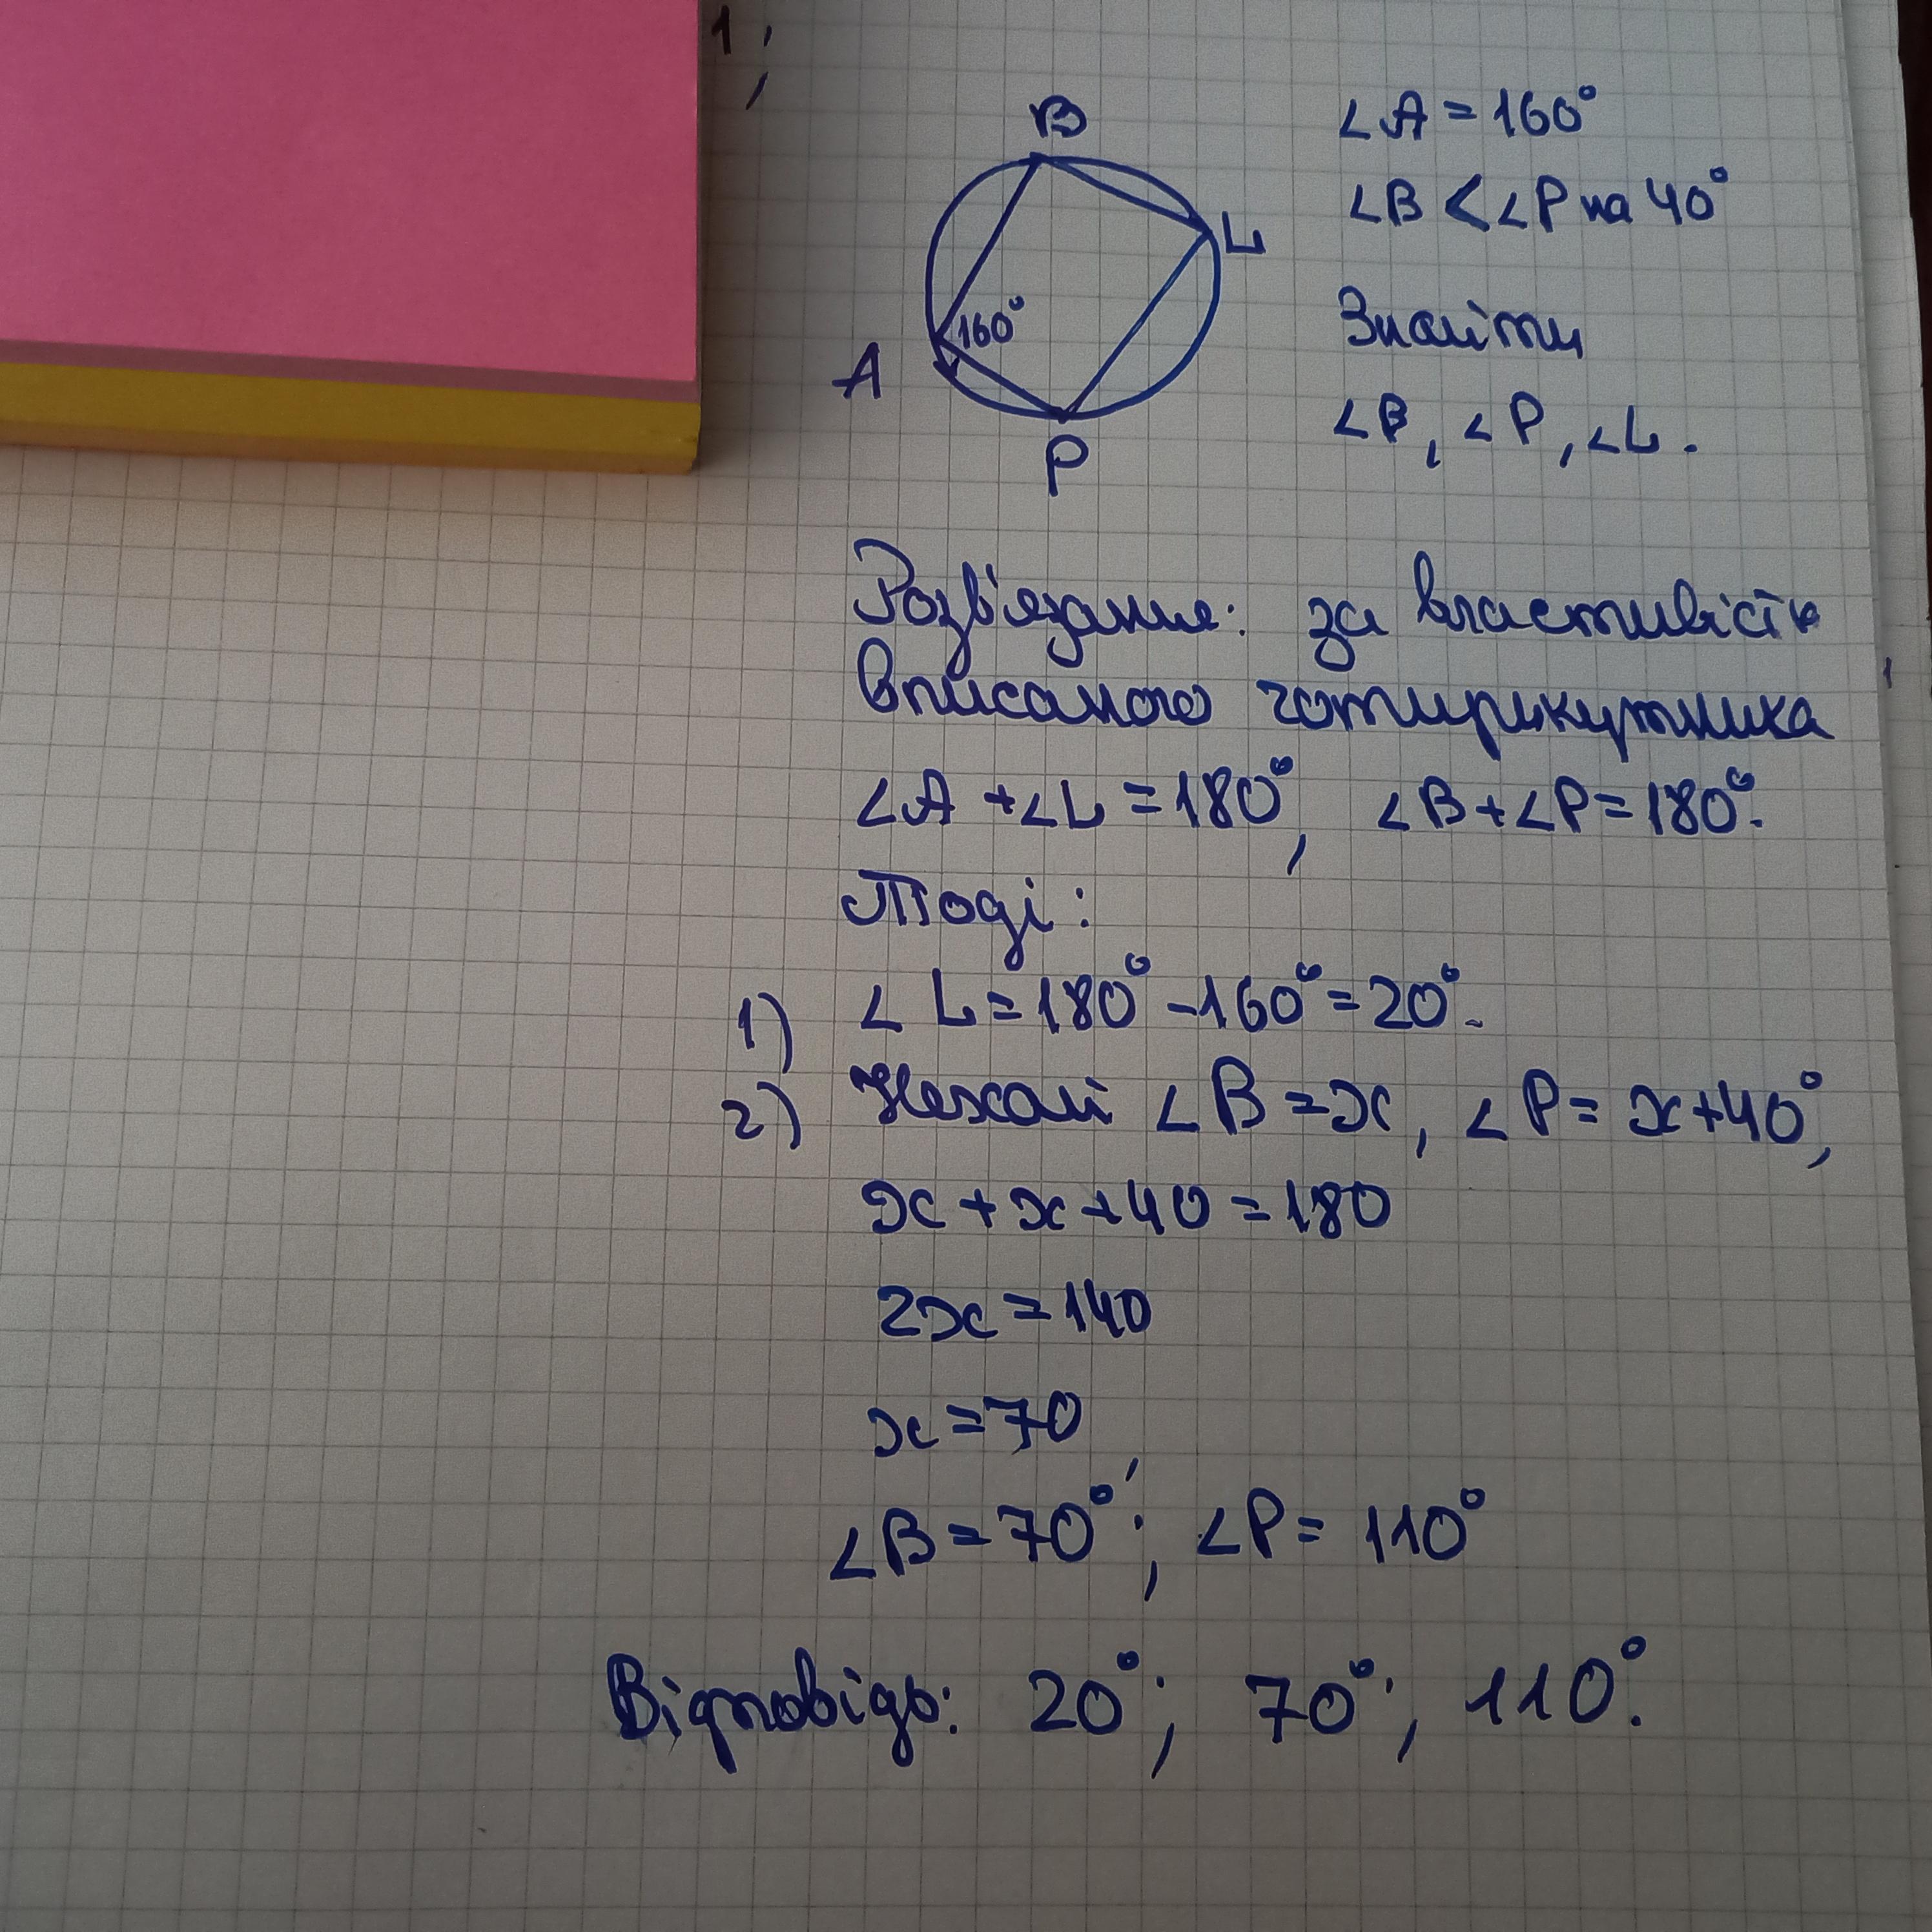 B
L
160°
A
P
∠A = 160°
∠B < ∠P на 40°
Знайти
∠B, ∠P, ∠L.
Розв'язання: за властивістю
вписаного чотирикутника
∠A + ∠L = 180°, ∠B + ∠P = 180°.
Тоді:
1) ∠L = 180° - 160° = 20°.
2) Нехай ∠B = x, ∠P = x + 40°,
x + x + 40 = 180
2x = 140
x = 70
∠B = 70°; ∠P = 110°
Відповідь: 20°; 70°; 110°.